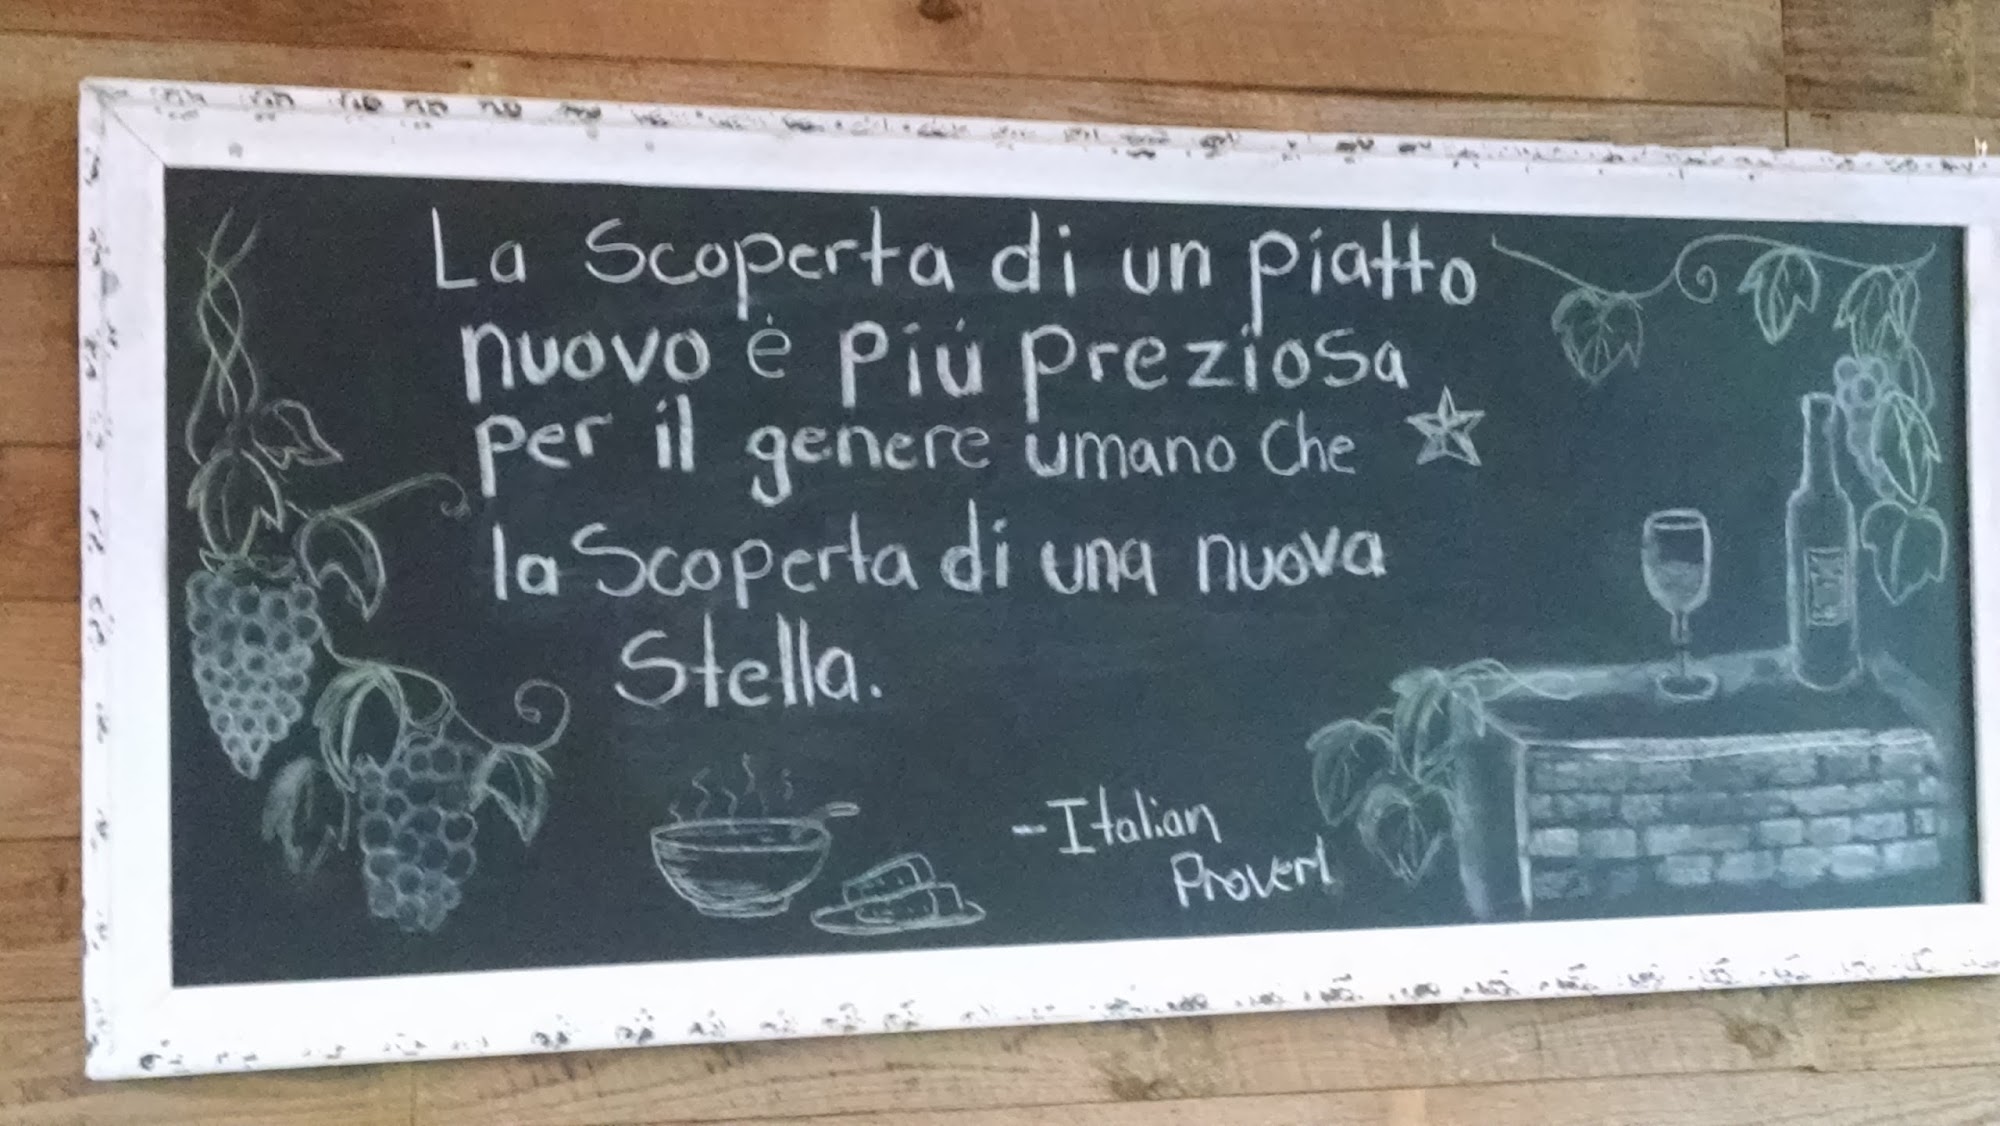 La Scoperta di un piatto
nuovo è più preziosa
per il genere umano che
la Scoperta di una nuova
Stella.
-Italian
Proverb